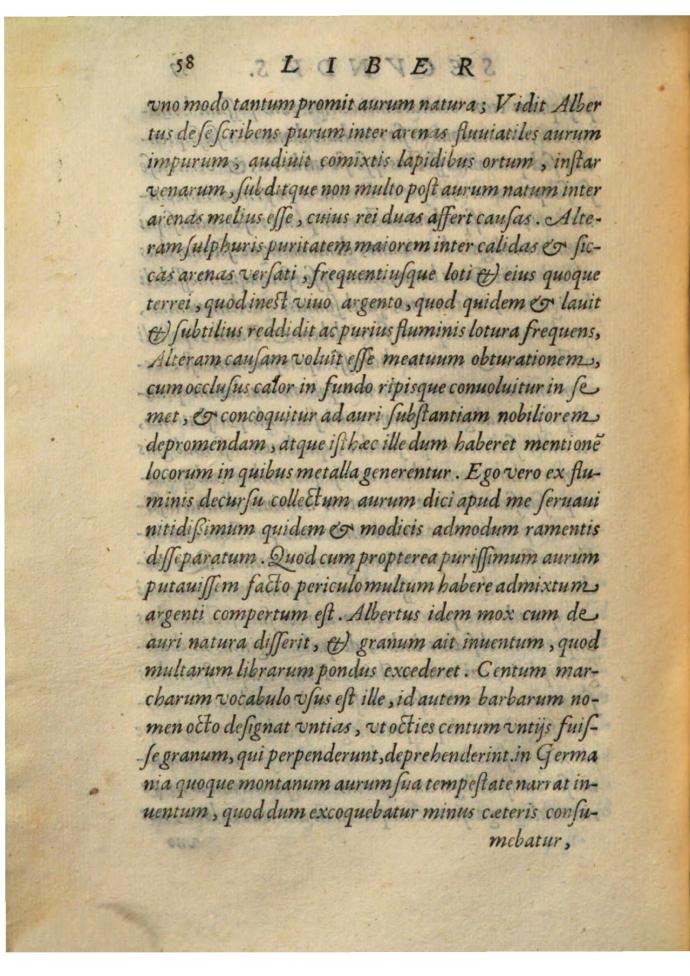 58 LIBER
vno modo tantum promit aurum natura; Vidit Alber
tus de se scribens purum inter arenas fluuiatiles aurum
impurum, audiuit comixtis lapidibus ortum, instar
venarum, subditque non multo post aurum natum inter
arenas melius esse, cuius rei duas affert causas. Alte-
ram sulphuris puritatem maiorem inter calidas & sic-
cas arenas versati, frequentiusque loti & eius quoque
terrei, quod inest viuo argento, quod quidem & lauit
& subtilius reddidit ac purius fluminis lotura frequens,
Alteram causam voluit esse meatuum obturationem,
cum occlusus calor in fundo ripisque conuoluitur in se
met, & concoquitur ad auri substantiam nobiliorem
depromendam, atque isthæc ille dum haberet mentionē
locorum in quibus metalla generentur. Ego vero ex flu-
minis decursu collectum aurum dici apud me seruaui
nitidissimum quidem & modicis admodum ramentis
disseparatum. Quod cum propterea purissimum aurum
putauissem facto periculo multum habere admixtum
argenti compertum est. Albertus idem mox cum de
auri natura disserit, & granum ait inuentum, quod
multarum librarum pondus excederet. Centum mar-
charum vocabulo vsus est ille, id autem barbarum no-
men octo designat vntias, vt octies centum vntijs fuis-
se granum, qui perpenderunt, deprehenderint. in Germa
nia quoque montanum aurum sua tempestate narrat in-
uentum, quod dum excoquebatur minus cæteris consu-
mebatur,